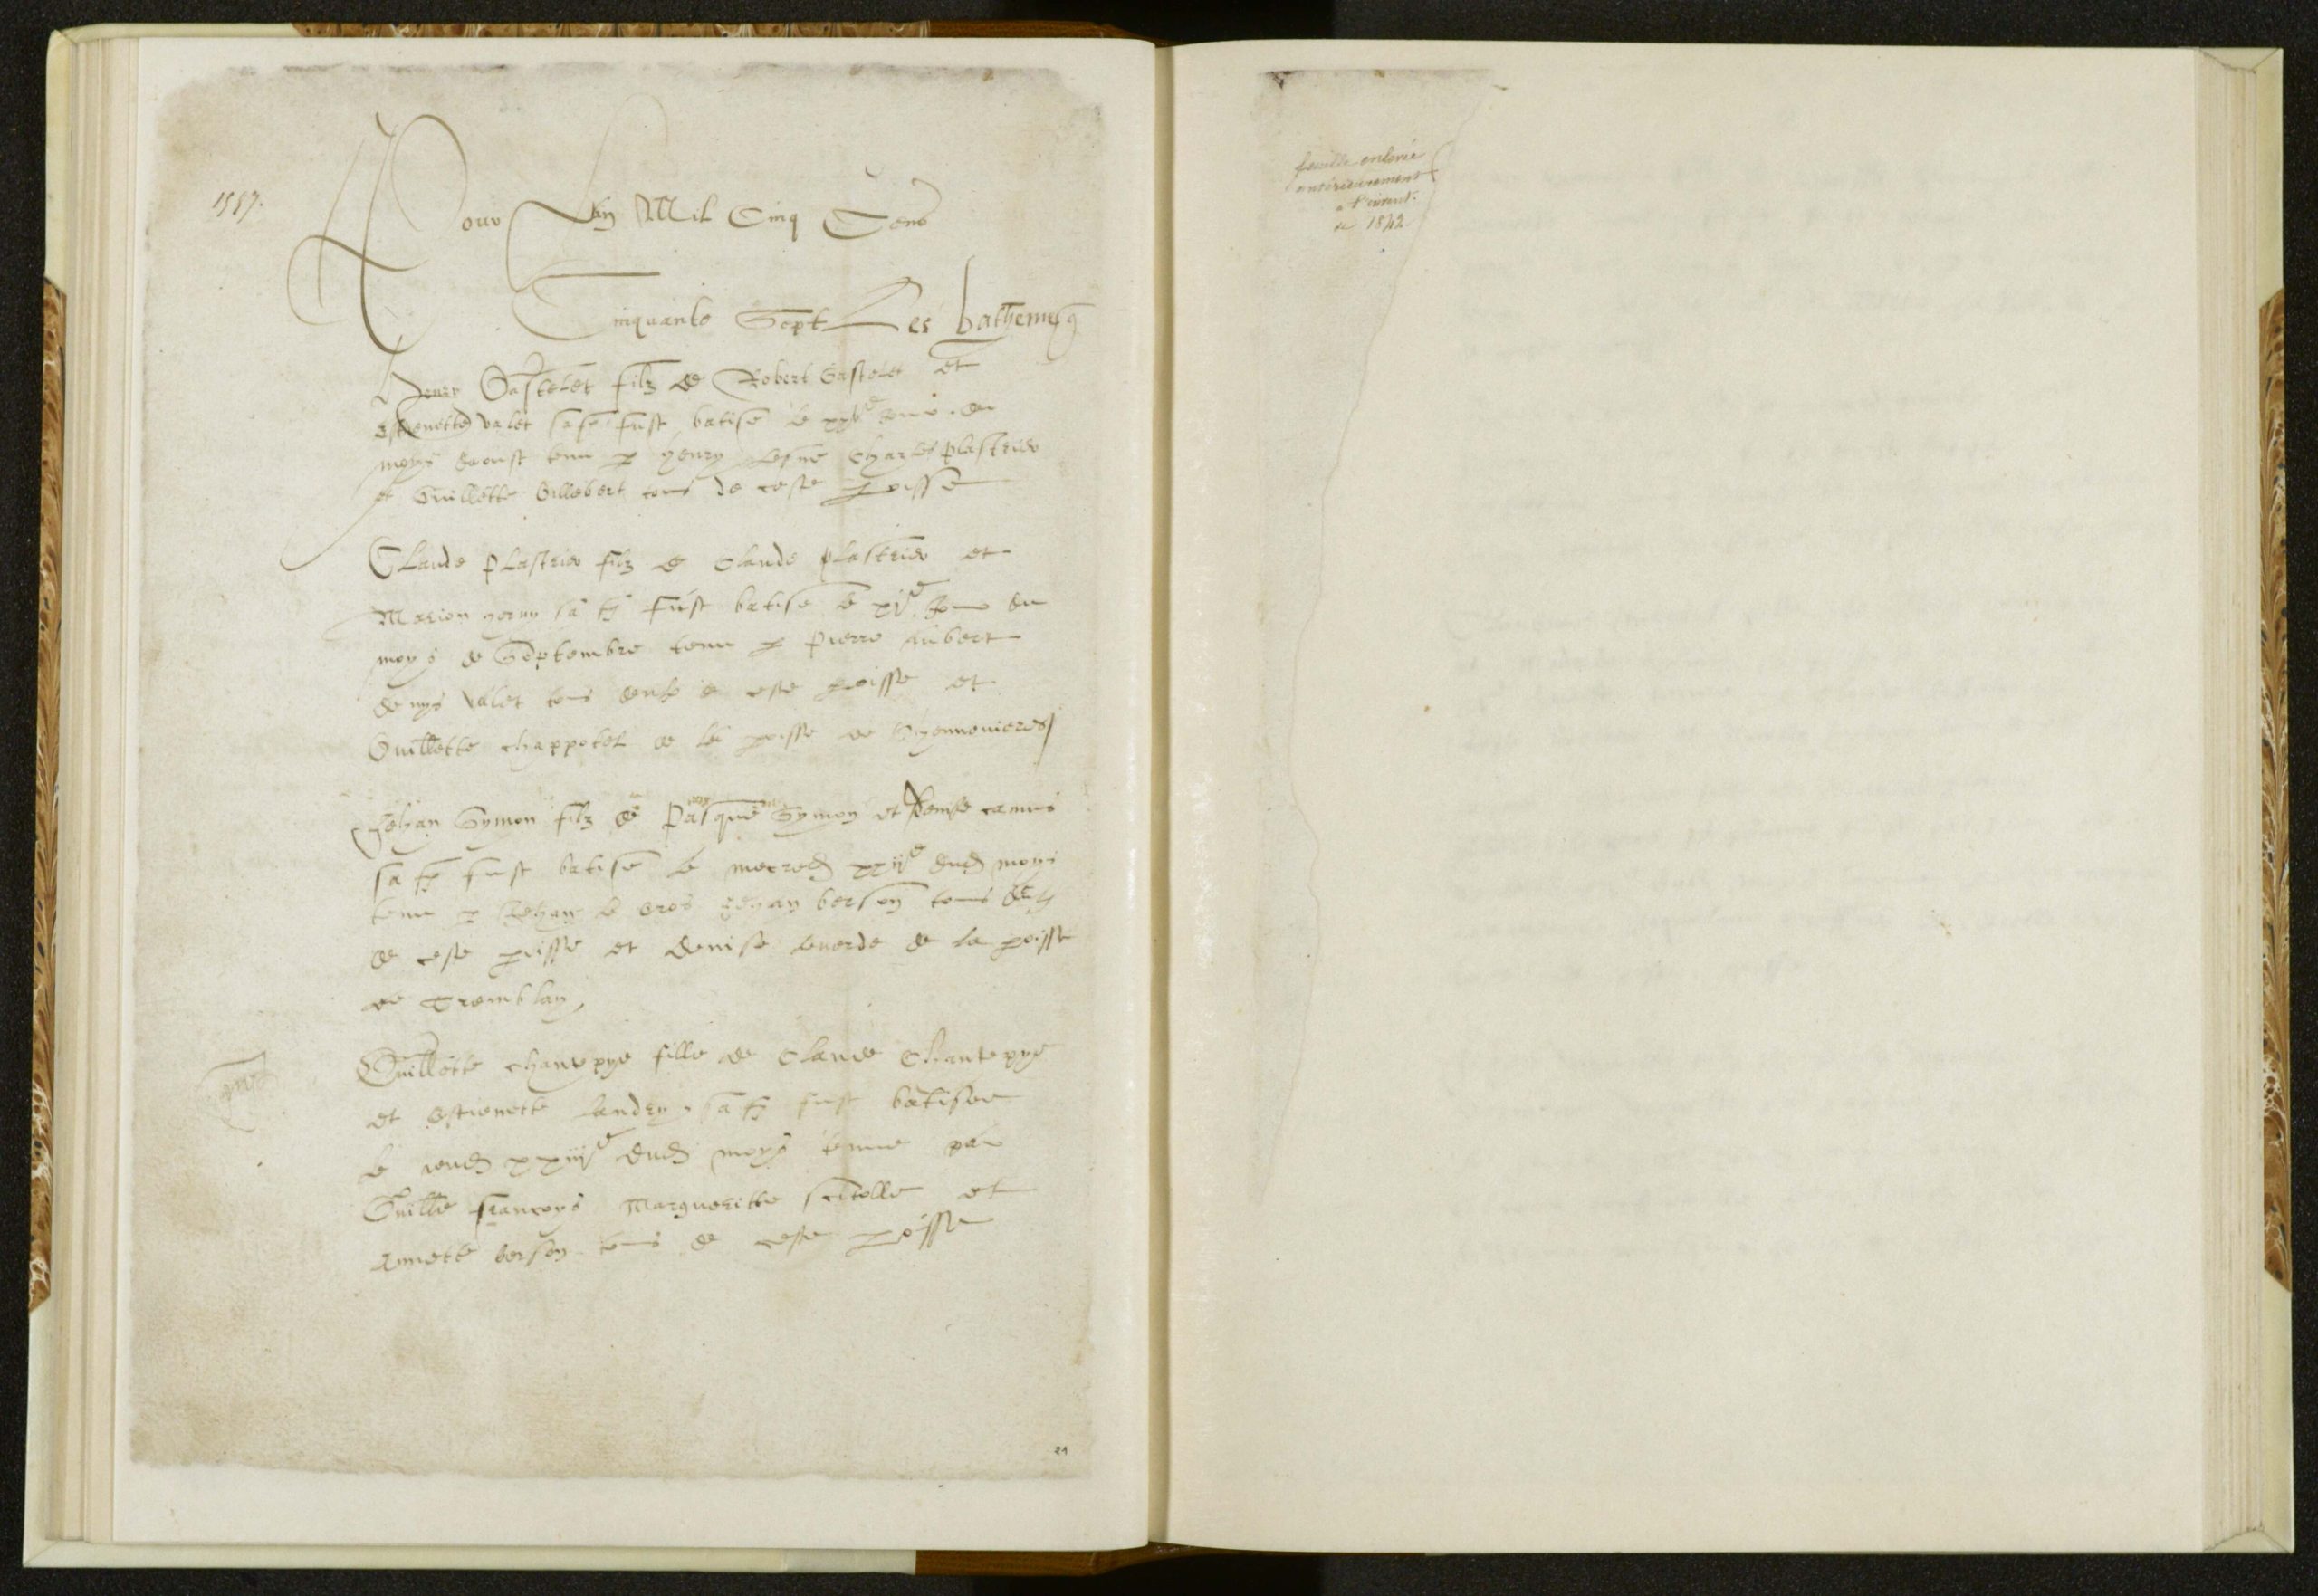 1557.
Pour Lan Mil Cinq Cens
Cinquante Sept Les bathemes
Henry Gastelet filz de Robert Gastelet et
estienette valet sa fe fust batisé le jour du
moys daoust tenu p henry charles plastrier
et Guillette Gillebert tous de ceste poisse
Claude plastrier filz de Claude plastrier et
Marion sa fe fust batisé le jour du
moys de Septembre tenu p Pierre Aubert
denys valet tous deulx de ceste poisse et
Guillette chappotel de la poisse de Gyennevieres
Jehan Symon filz de Pasque Symon et Denise camus
sa fe fust batisé le mecredi xxiie dud moys
tenu p Jehan le gros Jehan berson tous deux
de ceste poisse et denise de la poisse
de Tremblay
Guillette chantepye fille de Claude Chantepye
et estienette landry sa fe fust batisee
le jeudi xxiiie dud moys tenue par
Guille francoys Margueritte et
berson tous de ceste poisse
21
feuille enlevée
antérieurement
a l'invent.
de 1842